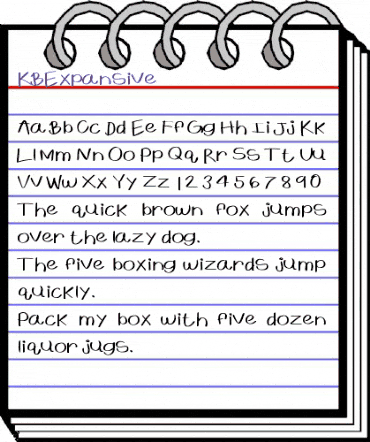 KBExpansive
Aa Bb Cc Dd Ee Ff Gg Hh Ii Jj Kk
Ll Mm Nn Oo Pp Qq Rr Ss Tt Uu
Vv Ww Xx Yy Zz 1 2 3 4 5 6 7 8 9 0
The quick brown fox jumps
over the lazy dog.
The five boxing wizards jump
quickly.
Pack my box with five dozen
liquor jugs.